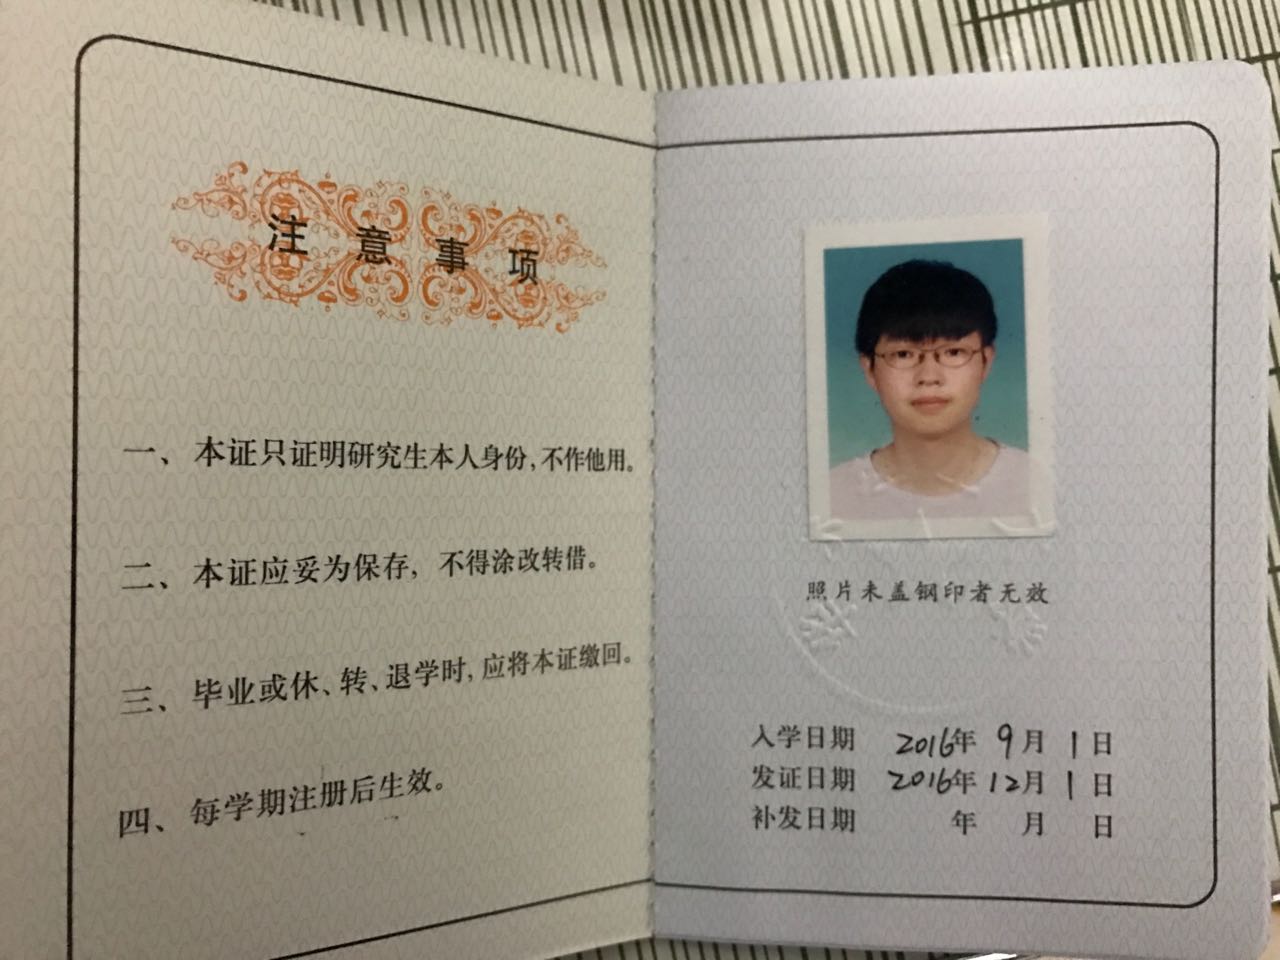 注意事项
一、本证只证明研究生本人身份,不作他用。
二、本证应妥为保存,不得涂改转借。
三、毕业或休、转、退学时,应将本证缴回。
四、每学期注册后生效。
照片未盖钢印者无效
入学日期 2016年 9月 1日
发证日期 2016年 12月 1日
补发日期 年 月 日